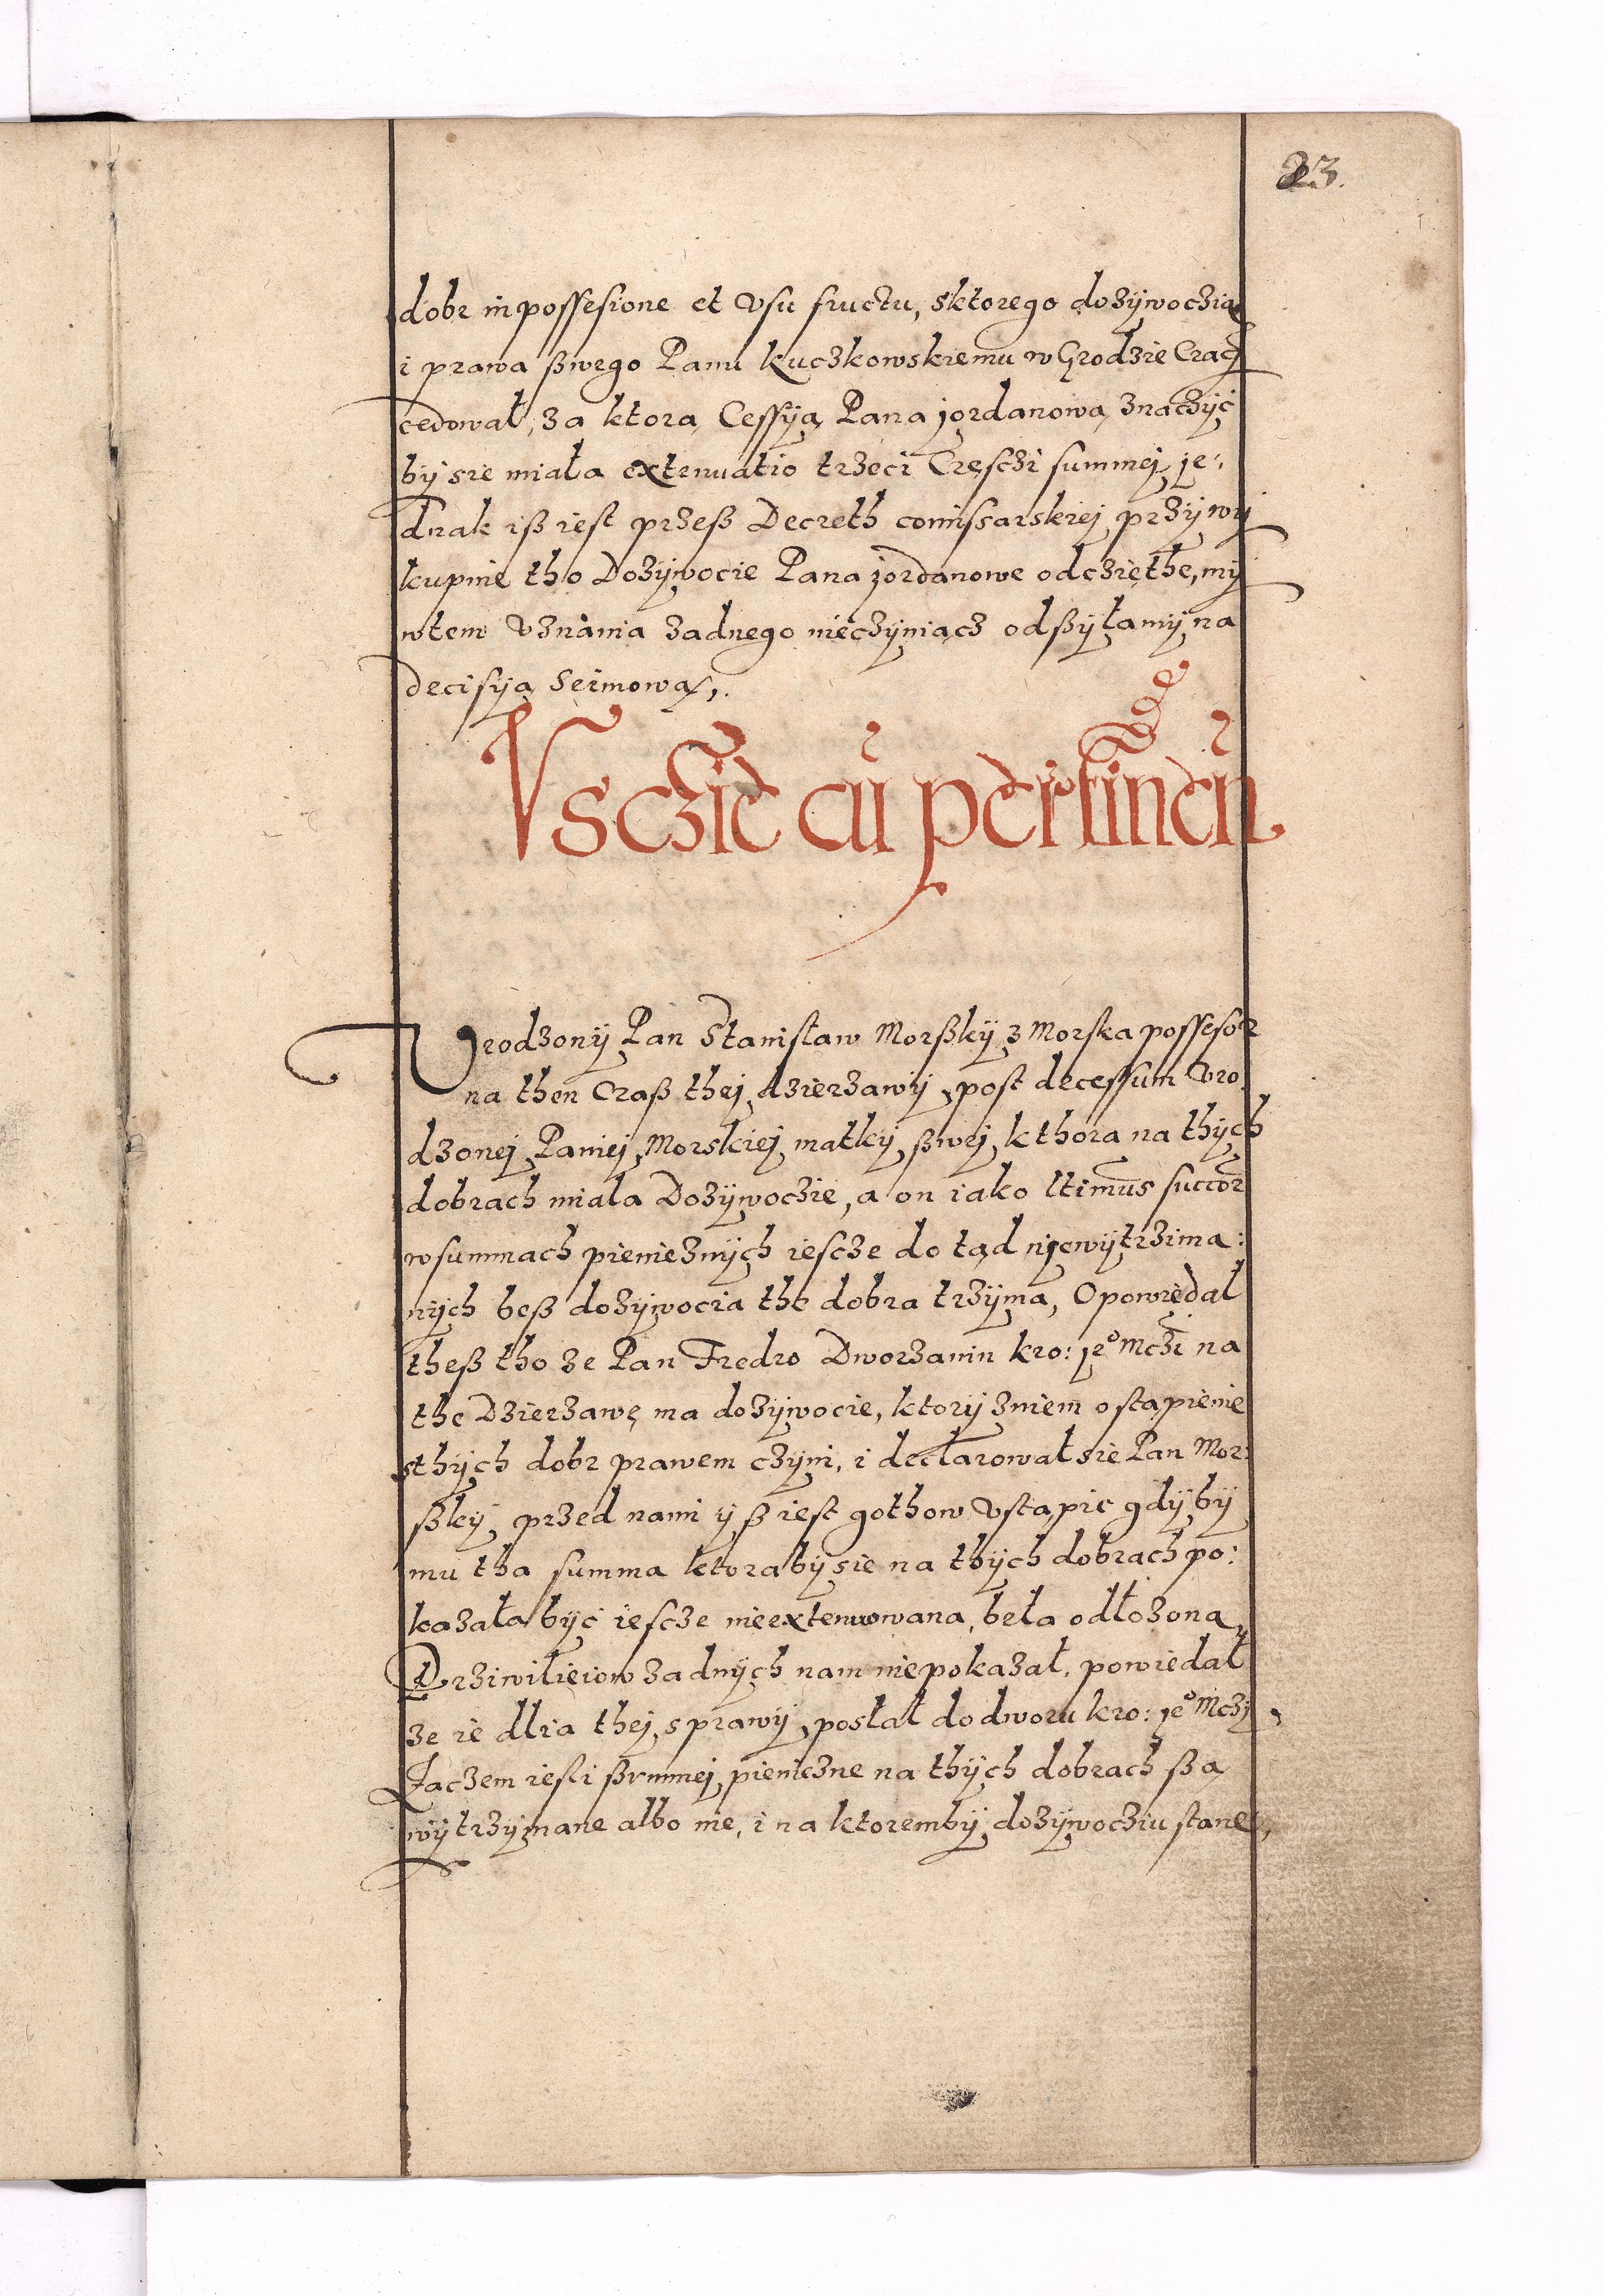 23.
dobr in possesione et vsu fructu, sktorego dożÿwoczia
i prawa ßwego Panu kuczkowskiemu w Grodzie Crac
cedował, za ktora Cessÿą Pana jordanową znaczÿć
bÿ sie miała extenuatio trzeci Cresczi summej je:
dnak iß iest przeß Decreth comissarskiej przÿ wÿ
kupnie tho Dozÿwocie Pana jordanowe odczięthe, mÿ
wtem vznania zadnego nieczÿniącz odßÿłamÿ na
decisÿą Seimową.
Vsczie cu pertinen
Vrodzonÿ Pan Stanisław Morßkÿ z Morska possesor
na then Craß thej dzierzawÿ post decessum Vro
dzonej Paniej Morskiej matkÿ ßwej kthora na thÿch
dobrach miala Dozÿwoczie, a on iako ltimus succor
wsummach pienieznÿch iescze do tąd niewÿtrzima:
nÿch beß dozÿwocia the dobra trzÿma, Opowiedal
theß tho ze Pan Fredro Dworzanin kro: jeº Mczi na
the Dzierzawę ma dozÿwocie, ktorÿ zniem o stąpienie
sthÿch dobr prawem czÿni, i declarował sie Pan Mor:
ßkÿ przed nami ÿß iest gothow vstąpic gdÿbÿ
mu tha summa ktora bÿ sie na thÿch dobrach po:
kazała bÿć iescze nieextenuowana, beła odłozona
Prziwilieiow zadnÿch nam niepokazał, powiedał
ze ie dlia thej sprawÿ posłał do dworu kro: jeº Mczÿ
Zaczem iesli ßummej pieniezne na thÿch dobrach ßą
wÿtrzÿmane albo nie, i na ktorembÿ dozÿwocziu stane,